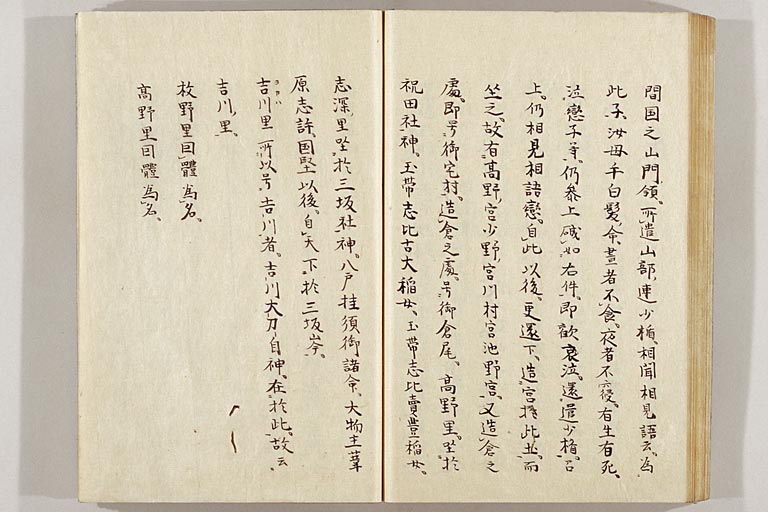 間国之山門領所遣山部連少楯相聞相見語云為
此子汝母手白髪命昼者不食夜者不寝有生有死
泣恋子等仍参上啓如右件即歓哀泣還遣少楯召
上仍相見相語恋自此以後更還下造宮於此土而
坐之故有高野宮少野宮川村宮池野宮又造倉之
處即号御宅村造倉之處号御倉尾高野里坐於
祝田社神玉帯志比古大稲女玉帯志比賣豊稲女
志深里坐於三坂社神八戸挂須御諸命大物主葦
原志許国堅以後自天下於三坂岑
吉川里所以号吉川者吉川大刀自神在於此故云
吉川里
枚野里因體為名
高野里因體為名